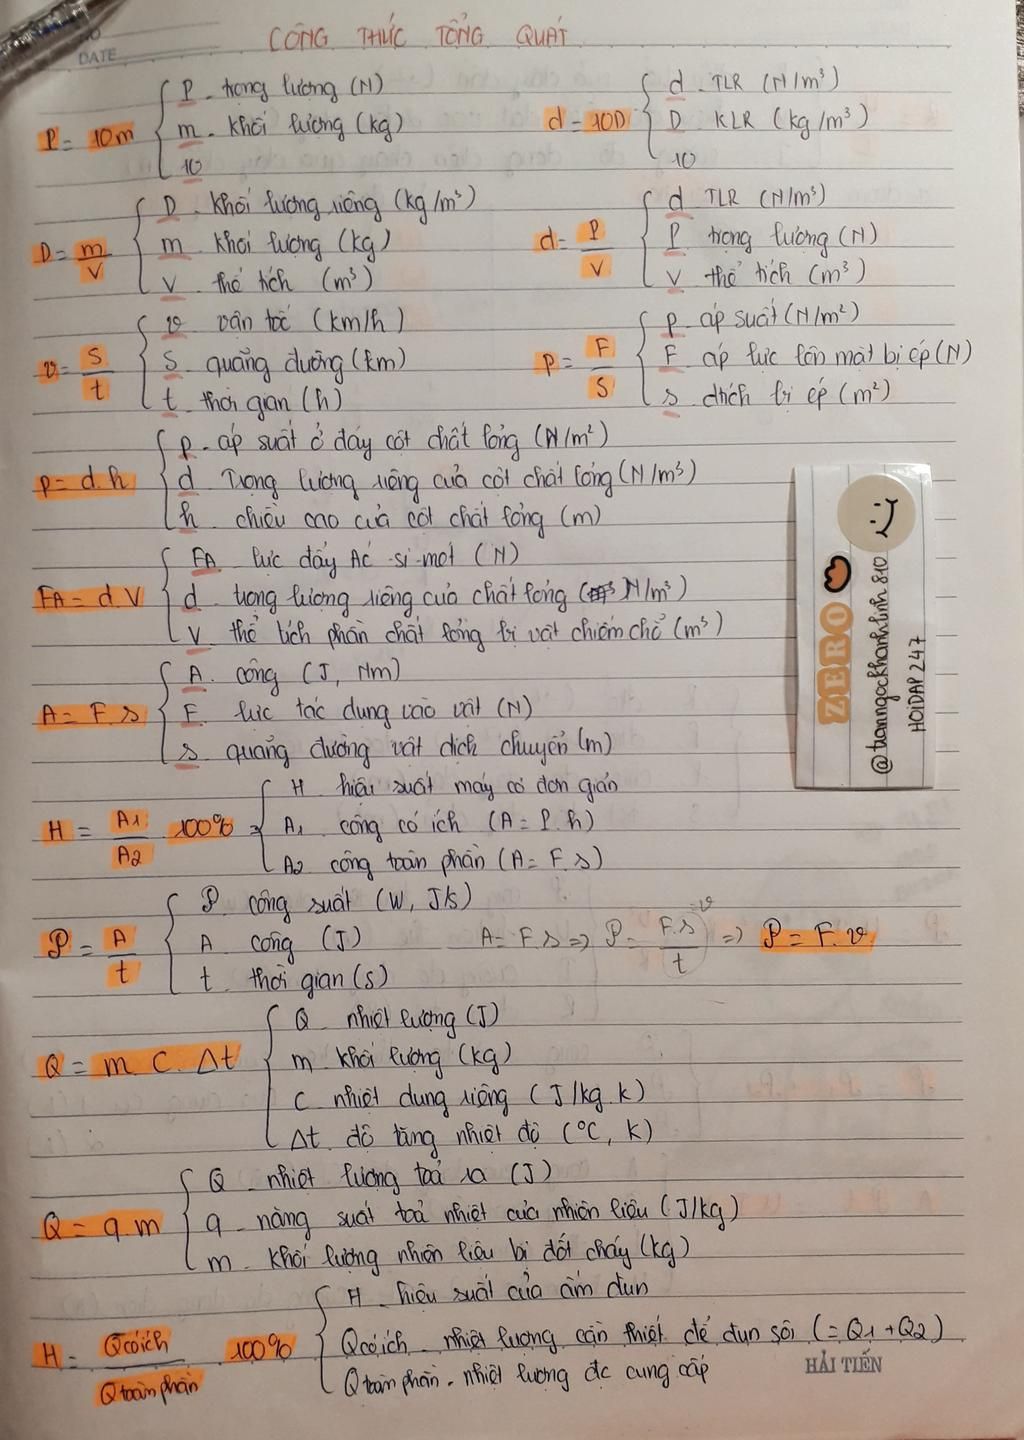 DATE
CÔNG THỨC TỔNG QUÁT
P = 10m
P - trọng lượng (N)
m - khối lượng (kg)
10
d = 10D
d - TLR (N/m³)
D KLR (kg/m³)
10
D = m/V
D - khối lượng riêng (kg/m³)
m khối lượng (kg)
V thể tích (m³)
d = P/V
d TLR (N/m³)
P trọng lượng (N)
V thể tích (m³)
v = S/t
v vận tốc (km/h)
S quãng đường (km)
t thời gian (h)
p = F/S
p - áp suất (N/m²)
F áp lực lên mặt bị ép (N)
s dtích bị ép (m²)
p = d.h
p - áp suất ở đáy cột chất lỏng (N/m²)
d Trọng lượng riêng của cột chất lỏng (N/m³)
h chiều cao của cột chất lỏng (m)
FA = d.V
FA lực đẩy Ác-si-mét (N)
d trọng lượng riêng của chất lỏng (N/m³)
V thể tích phần chất lỏng bị vật chiếm chỗ (m³)
A = F.s
A công (J, Nm)
F lực tác dụng vào vật (N)
s quãng đường vật dịch chuyển (m)
H = A1/A2 100% =
H hiệu suất máy cơ đơn giản
A1 công có ích (A = P.h)
A2 công toàn phần (A = F.s)
P = A/t
P công suất (W, J/s)
A công (J)
t thời gian (s)
A = F.s => P = F.s/t v => P = F.v
Q = m.C.Δt
Q nhiệt lượng (J)
m khối lượng (kg)
C nhiệt dung riêng (J/kg.k)
Δt độ tăng nhiệt độ (°C, k)
Q = q.m
Q - nhiệt lượng toả ra (J)
q - năng suất toả nhiệt của nhiên liệu (J/kg)
m khối lượng nhiên liệu bị đốt cháy (kg)
H = Qcóích/Qtoànphần 100%
H - hiệu suất của ấm đun
Qcóích - nhiệt lượng cần thiết để đun sôi (= Q1 + Q2)
Qtoànphần - nhiệt lượng đc cung cấp
HẢI TIẾN
ZERO
:-)
@tranngockhanhlinh810
HOIDAP247